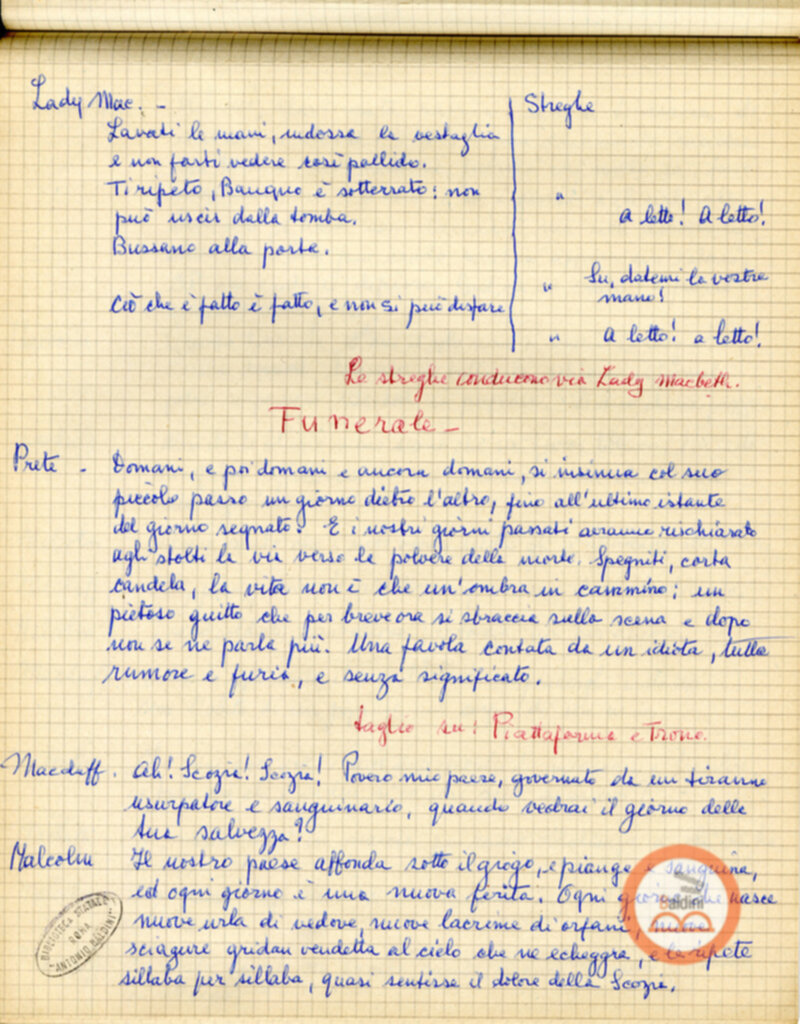 Lady Mac. -
Lavati le mani, indossa la vestaglia
e non farti vedere così pallido.
Ti ripeto, Banquo è sotterrato: non
può uscir dalla tomba.
Bussano alla porta.
Ciò che è fatto è fatto, e non si può disfare
Streghe
" A letto! A letto!
" Su, datemi la vostra
mano!
" A letto! a letto!
Le streghe conducono via Lady Macbeth.
Funerale -
Prete - Domani, e poi domani e ancora domani, si insinua col suo
piccolo passo un giorno dietro l'altro, fino all'ultimo istante
del giorno segnato. E i nostri giorni passati avranno rischiarato
agli stolti la via verso la polvere della morte. Spegniti, corta
candela, la vita non è che un'ombra in cammino; un
pietoso guitto che per breve ora si sbraccia sulla scena e dopo
non se ne parla più. Una favola contata da un idiota, tutta
rumore e furia, e senza significato.
taglio su: Piattaforma e Trono.
Macduff. Ah! Scozia! Scozia! Povero mio paese, governato da un tiranno
usurpatore e sanguinario, quando vedrai il giorno della
tua salvezza?
Malcolm Il nostro paese affonda sotto il giogo, e piange e sanguina,
ed ogni giorno è una nuova ferita. Ogni giorno che nasce
nuove urla di vedove, nuove lacrime di orfani, nuove
sciagure gridan vendetta al cielo che ne echeggia, e le ripete
sillaba per sillaba, quasi sentisse il dolore della Scozia.
BIBLIOTECA STATALE
ROMA
"ANTONIO BALDINI"
Baldini